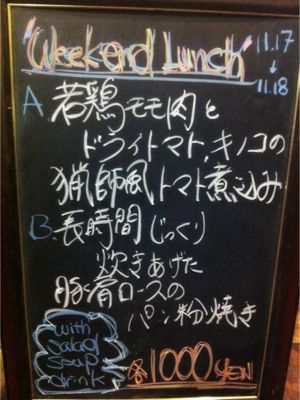 "Weekend Lunch"
11.17
↓
11.18
A. 若鶏モモ肉と
ドライトマト、キノコの
猟師風トマト煮込み
B. 長時間じっくり
炊きあげた
豚肩ロースの
パン粉焼き
with
salad
soup
drink
¥1000 YEN